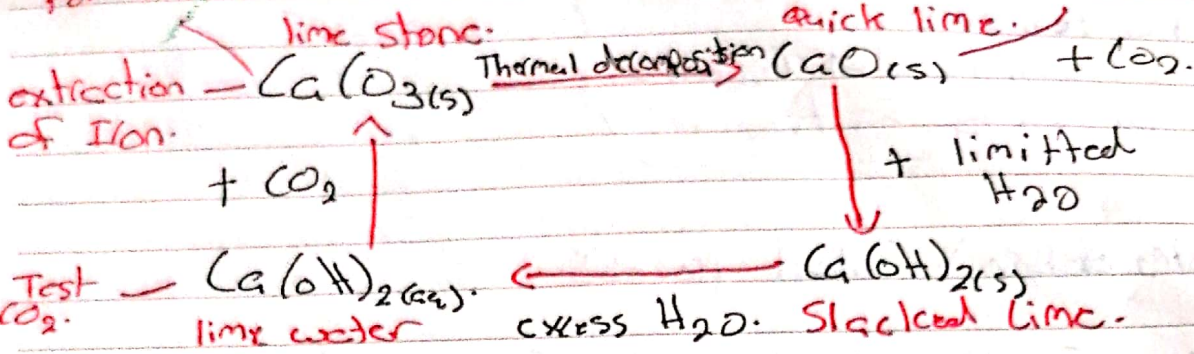 lime stone. Quick lime.
extraction — CaCO3(s) Thermal decomposition CaO(s) + CO2.
of Iron.
+ CO2 + limitted
H2O
Test — Ca(OH)2(aq). Ca(OH)2(s)
CO2. lime water excess H2O. Slacked Lime.